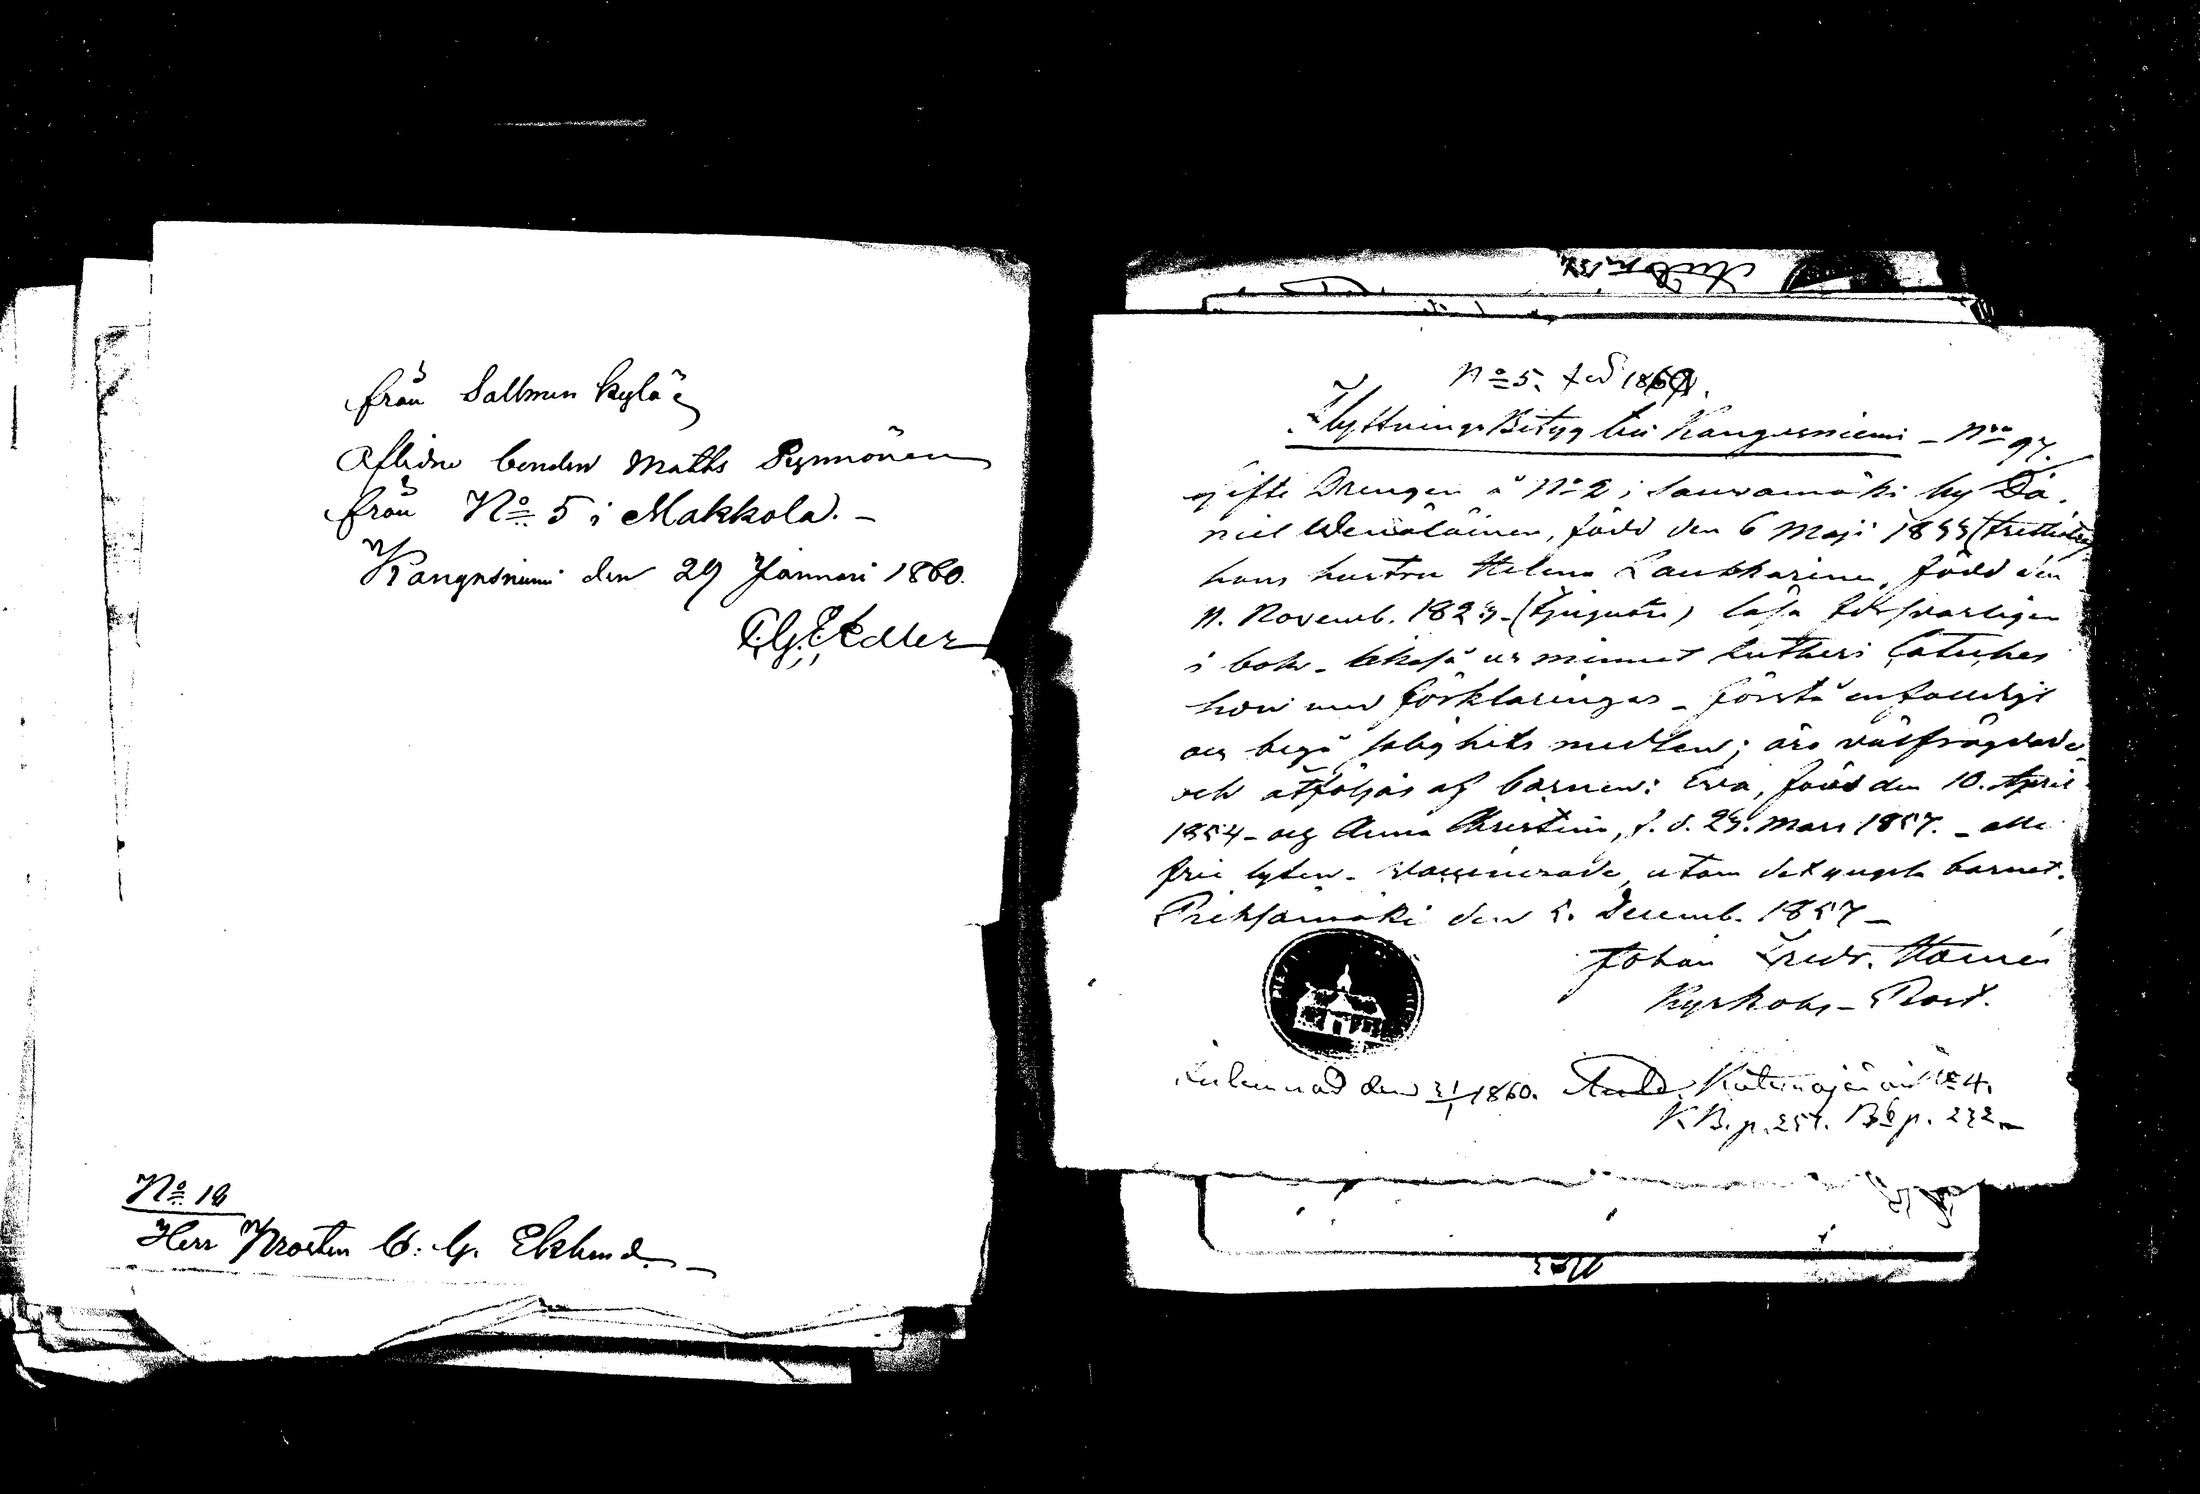 från Salmen kylä
Aflidne bonden Maths Pynnönen
från No 5 i Makkola. –
Kangasniemi den 29 Januari 1860.
No 18
Herr Prosten C. G. Eklund. –
No 5. 1860.
Flyttnings Betyg till Kangasniemi – Nro 97.
gifte Drengen å No 2 i Sauvamäki by Da-
niel Wenäläinen, född den 6 Maji 1833 (trettiotre)
hans hustru Helena Laukkarinen, född den
11. Novemb. 1823 – (tjugutre) läsa försvarligen
i bok – likaså ur minnet Lutheri Cateches
hon med förklaringar – förstå enfaldigt
och begå salighets medlen; äro välfrägdade
och åtföljas af barnen: Eva, född den 10. April
1854 – och Anna Christina, f. d. 23. Mars 1857. – alla
frie lyten – vaccinerade, utom det yngsta barnet.
Pieksämäki den 5. Decemb. 1857 –
Johan Fredr.
Kyrkoh. – Prost.
Inlemnad den 31/1 1860. No 4.
K B. p. 257. B b p. 232 –